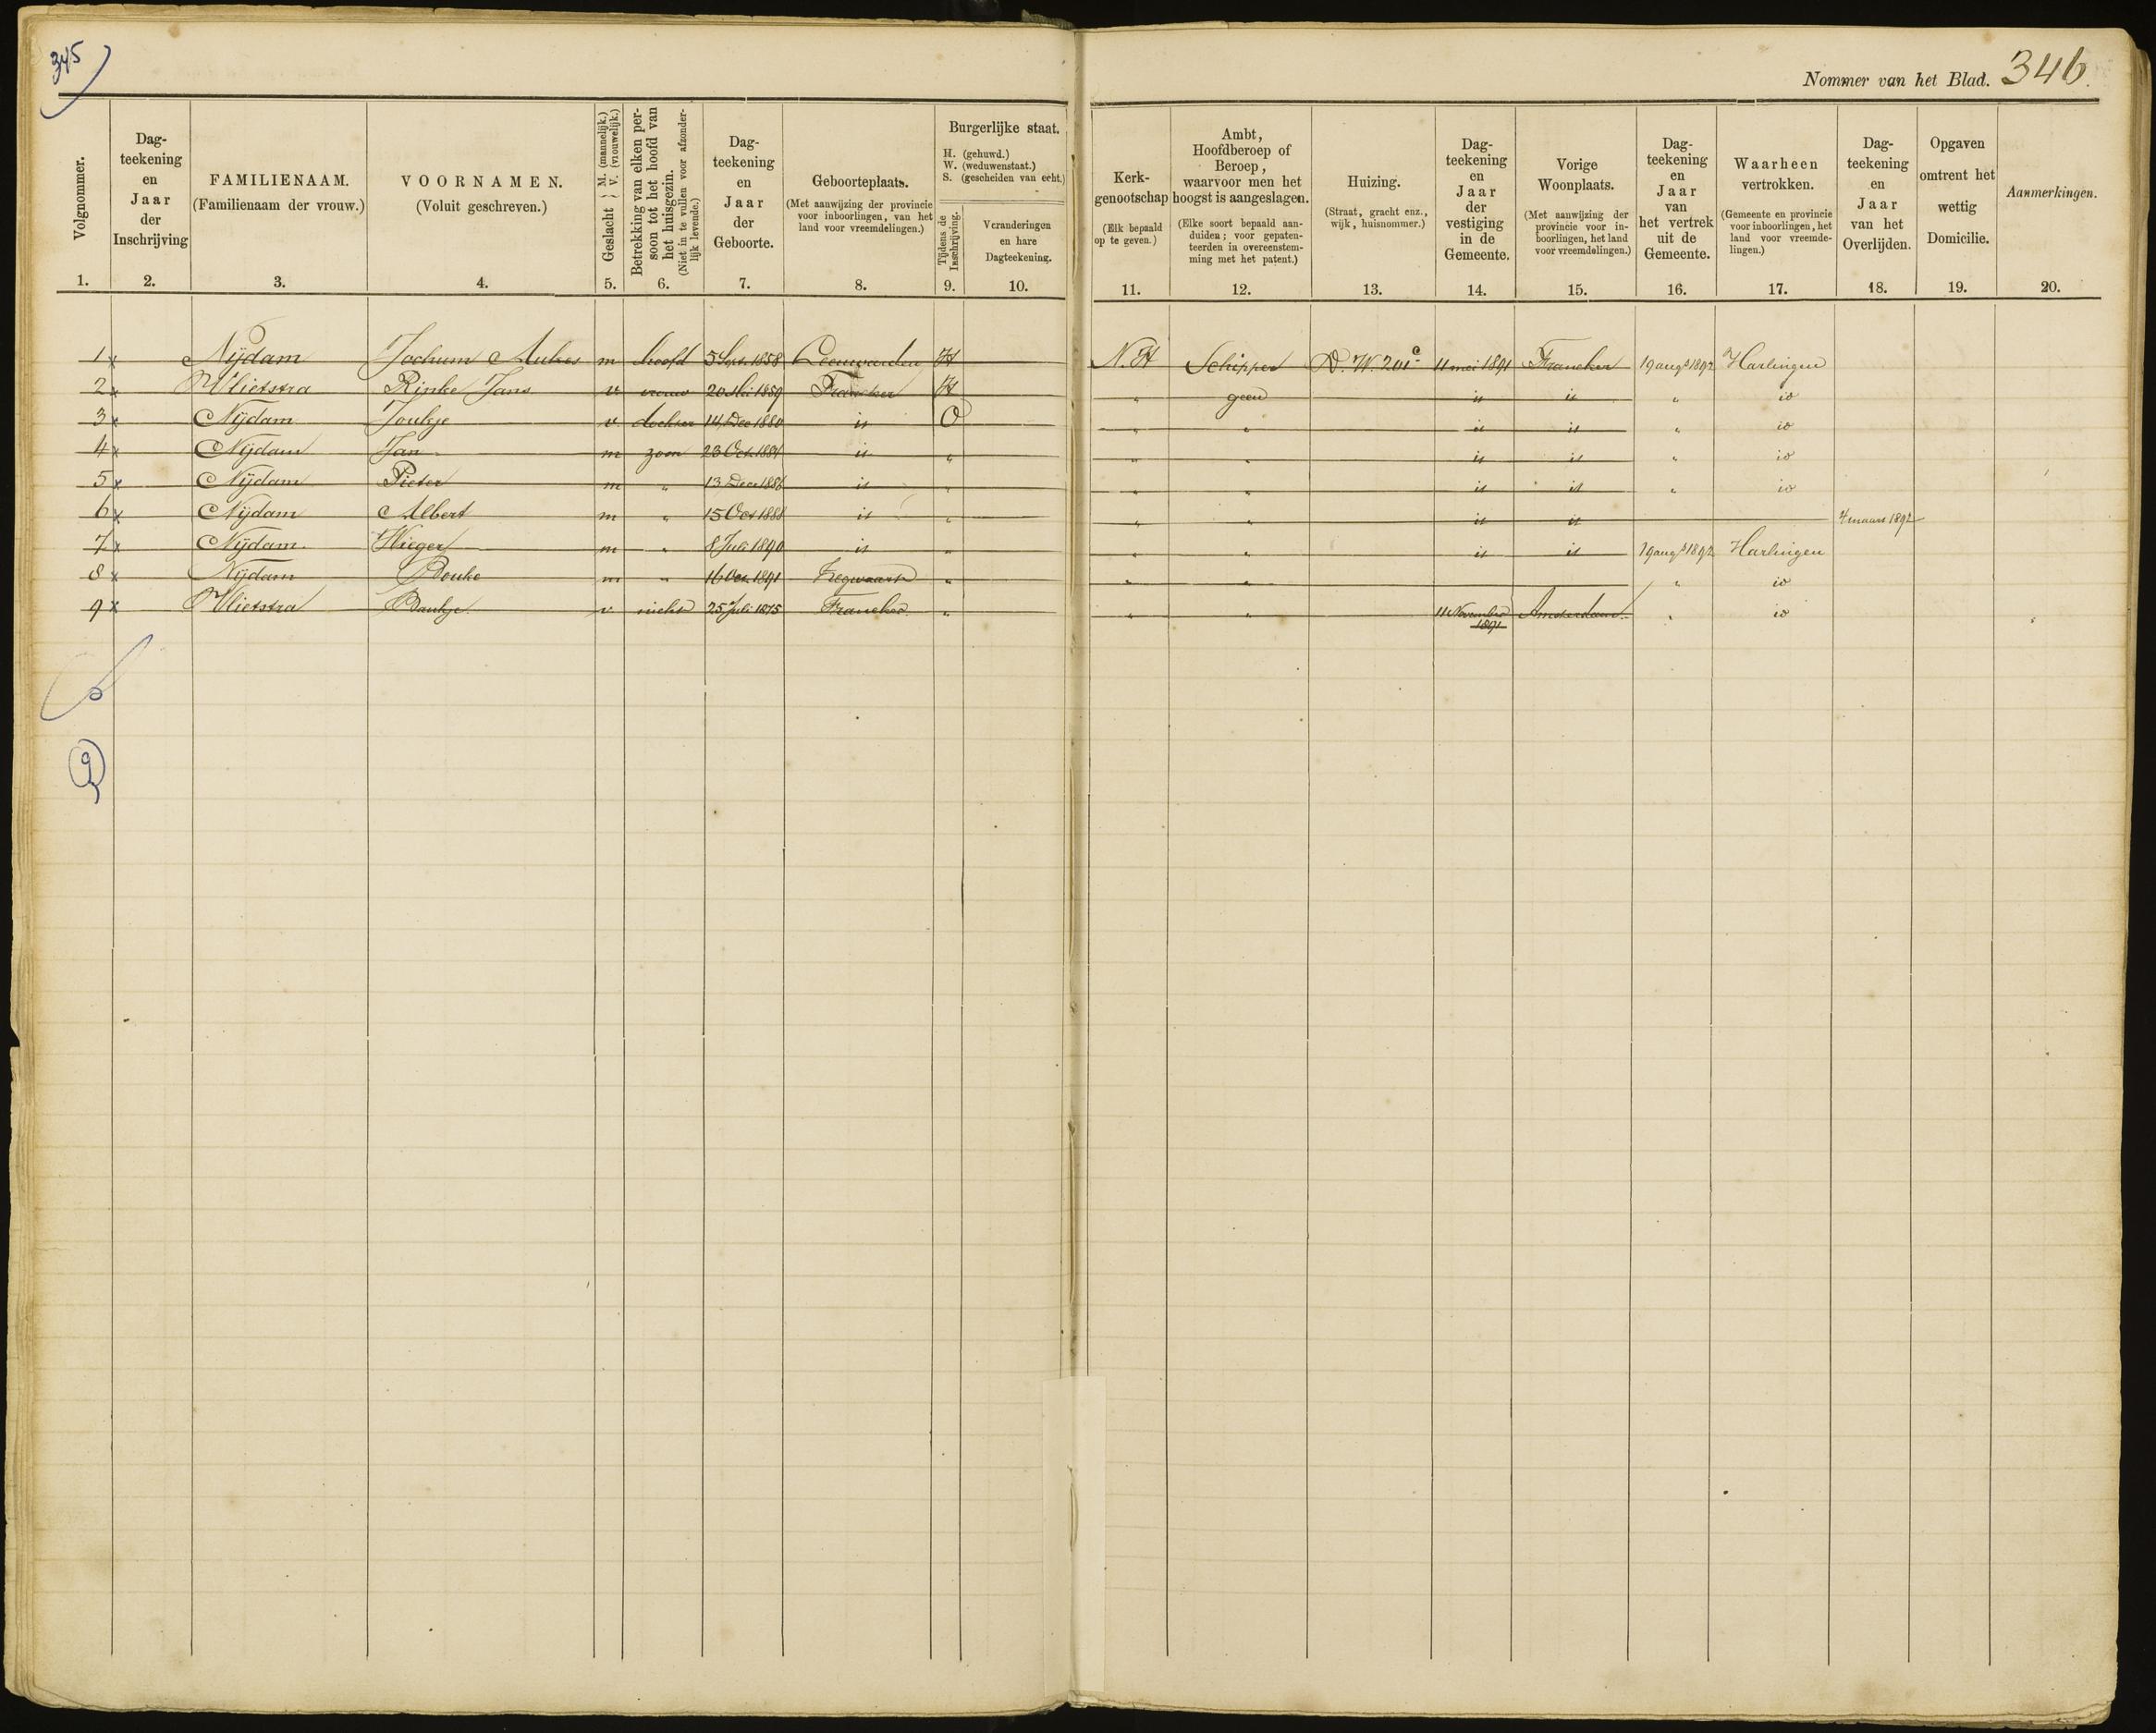 345
Nommer van het Blad. 346.
Volgnommer. 1.
Dag-
teekening
en
Jaar
der
Inschrijving
2.
FAMILIENAAM.
(Familienaam der vrouw.)
3.
VOORNAMEN.
(Voluit geschreven.)
4.
Geslacht { M. (mannelijk.) V. (vrouwelijk.)
5.
Betrekking van elken per-
soon tot het hoofd van
het huisgezin.
(Niet in te vullen voor afzonder-
lijk levende.)
6.
Dag-
teekening
en
Jaar
der
Geboorte.
7.
Geboorteplaats.
(Met aanwijzing der provincie
voor inboorlingen, van het
land voor vreemdelingen.)
8.
Burgerlijke staat.
H. (gehuwd.)
W. (weduwenstaat.)
S. (gescheiden van echt.)
Tijdens de
Inschrijving.
9.
Veranderingen
en hare
Dagteekening.
10.
Kerk-
genootschap
(Elk bepaald
op te geven.)
11.
Ambt,
Hoofdberoep of
Beroep,
waarvoor men het
hoogst is aangeslagen.
(Elke soort bepaald aan-
duiden; voor gepaten-
teerden in overeenstem-
ming met het patent.)
12.
Huizing.
(Straat, gracht enz.,
wijk, huisnommer.)
13.
Dag-
teekening
en
Jaar
der
vestiging
in de
Gemeente.
14.
Vorige
Woonplaats.
(Met aanwijzing der
provincie voor in-
boorlingen, het land
voor vreemdelingen.)
15.
Dag-
teekening
en
Jaar
van
het vertrek
uit de
Gemeente.
16.
Waarheen
vertrokken.
(Gemeente en provincie
voor inboorlingen, het
land voor vreemde-
lingen.)
17.
Dag-
teekening
en
Jaar
van het
Overlijden.
18.
Opgaven
omtrent het
wettig
Domicilie.
19.
Aanmerkingen.
20.
1 x Nijdam Jochum Aukes m hoofd 5 Sept. 1858 Leeuwarden H N.H Schipper D. W. 201 c 11 mei 1891 Franeker 19 augs 1892 Harlingen
2 x Vlietstra Rinke Jans v vrouw 1859 Franeker H " geen is is " io
3 x Nijdam Joukje v. dochter 14 Dec 1880 is O " " is is " io
4 x Nijdam Jan m zoon 23 Oct. 1884 is " " " is is " io
5 x Nijdam Pieter m " 13 Dec 1886 is " " " is is " io
6 x Nijdam Albert m " 15 Oct 1888 is " " " is is 4 maart 1892
7 x Nijdam Wieger m " 8 Juli 1890 is " " " is is 19 augs 1892 Harlingen
8 x Nijdam Douke m " 16 Oct. 1891 " " " " io
9 x Vlietstra Baukje v nicht 25 Juli 1875 Franeker " " " 11 November 1891 Amsterdam " io
9